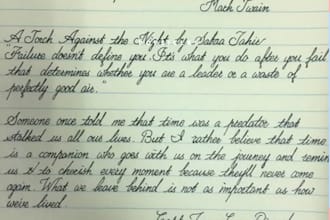 Mark Twain
A Torch Against the Night by Sabaa Tahir
"Failure doesn't define you. It's what you do after you fail
that determines whether you are a leader or a waste of
perfectly good air."
Someone once told me that time was a predator that
stalked us all our lives. But I rather believe that time
is a companion who goes with us on the journey and remin
us to cherish every moment because they'll never come
again. What we leave behind is not as important as how
we've lived.